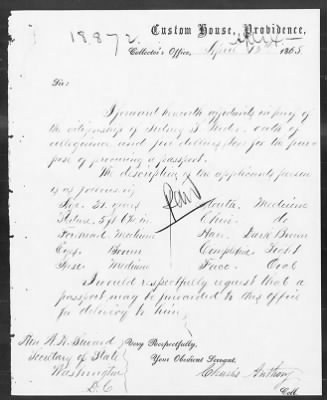 18.872.
Custom House, Providence,
Collector's Office, April 1865
Sir:
I forward herewith affidavits in proof of
the citizenship of Sidney S. oath of
allegiance and five dollars for the pur-
pose of procuring a passport.
The description of the applicants person
is as follows viz
Paid
Age. 21 years Mouth. Medium
Stature. 5 ft Chin do
Forehead. Medium Hair. Dark Brown
Eyes. Brown Complexion.
Nose. Medium Face. Oval
I would respectfully request that a
passport may be forwarded to this office
for delivery to him.
Hon W. H. Seward Very Respectfully,
Secretary of State Your Obedient Servant,
Washington Charles Anthony
D.C. Coll.